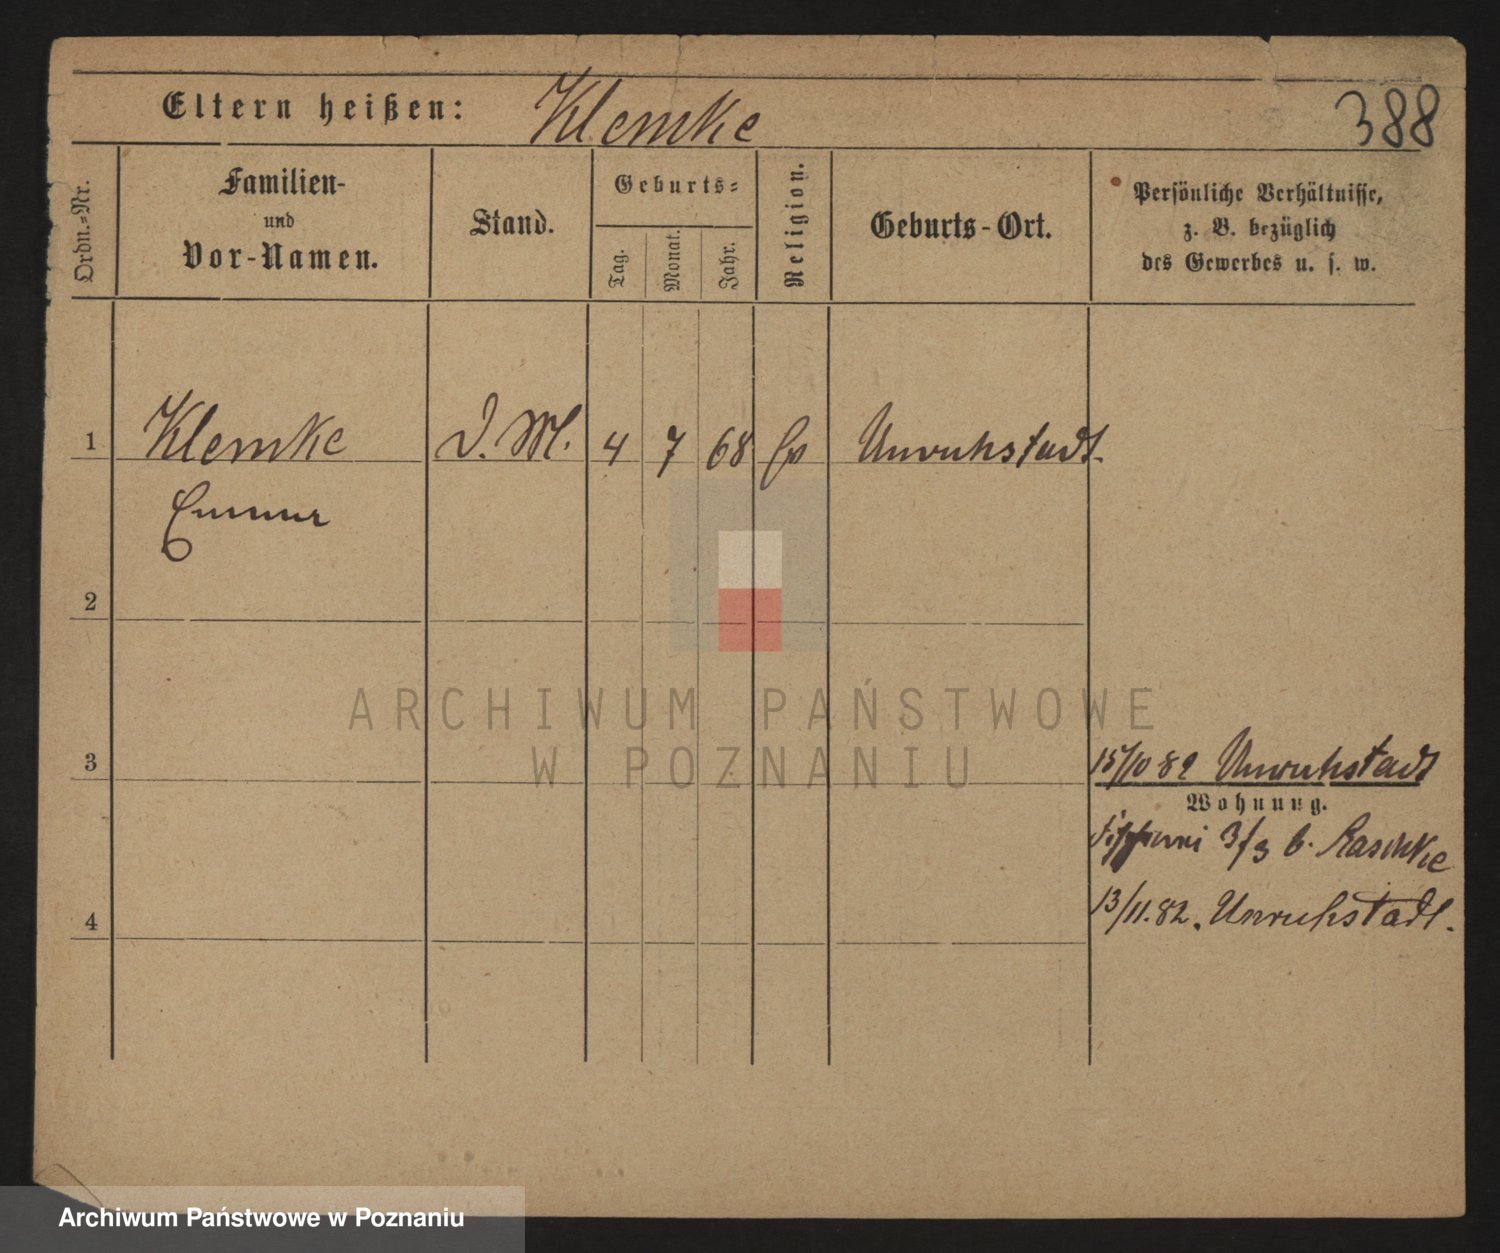 Eltern heißen: Klemke
388
Ordn.-Nr.
Familien-
und
Vor-Namen.
Stand.
Geburts-
Tag.
Monat.
Jahr.
Religion.
Geburts-Ort.
Persönliche Verhältnisse,
z. B. bezüglich
des Gewerbes u. s. w.
1 Klemke D. M. 4 7 68 Unruhstadt.
Emma
2
3
15/10 82 Unruhstadt
Wohnung.
3/3 b. Raschke
13/11.82. Unruhstadt.
4
ARCHIWUM PAŃSTWOWE
W POZNANIU
Archiwum Państwowe w Poznaniu